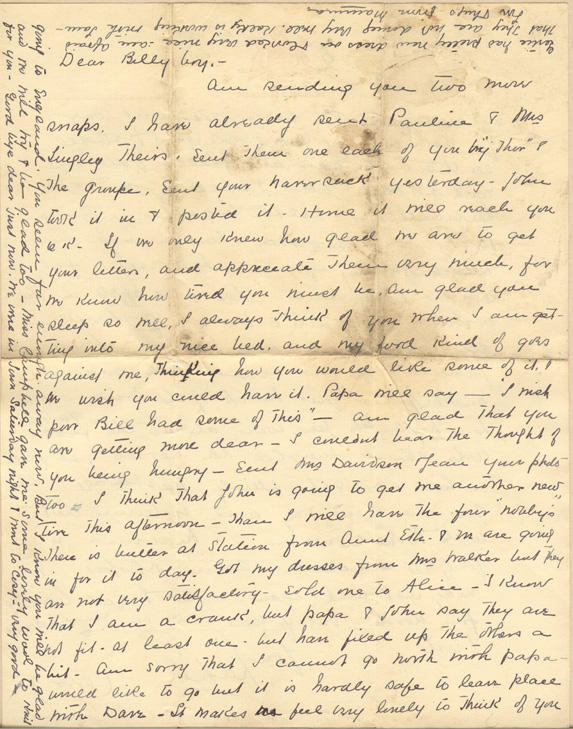 Dear Billy boy. -
Am sending you two more
snaps. I have already sent Pauline & Mrs
Singley Theirs. Sent Them one each of you "by Thor" &
The groupe. Sent your haversack yesterday - John
took it in & posted it. Hope it will reach you
O.K. If you only knew how glad we are to get
your letters, and appreciate Them very much, for
we know how tired you must be, am glad you
sleep so well, I always Think of you when I am get-
ting into my nice bed, and my food kind of goes
against me, Thinking how you would like some of it, &
we wish you could have it. Papa will say - "I wish
poor Bill had some of This" - am glad That you
are getting more dear - I couldnt bear The Thought of
you being hungry - Sent Mrs Davidson & Jean your photo
too - I Think That John is going to get me another new
tire This afternoon - Then I will have The four "nobbys"
There is butter at Station from Aunt Eth. & we are going
in for it to day. Got my dresses from Mrs Walker but They
are not very satisfactory - sold one to Alice - I know
That I am a crank, but papa & John say They are
not fit - at least one - but have fixed up the others a
bit - Am sorry That I cannot go north with papa -
would like to go but it is hardly safe to leave place
with Dave - It makes me feel very lonely to Think of you
going to England. You seem far enough away now, But I know you will be glad
and we will try & be glad too - Miss Campbell gave me some lovely wool to knit
for you - Good bye dear just now. We were in Town Saturday night & went to Cosy - very good -
has pretty new dress on & looks very nice - am afraid
That They are not doing very well. is working with Sam -
from Mamma